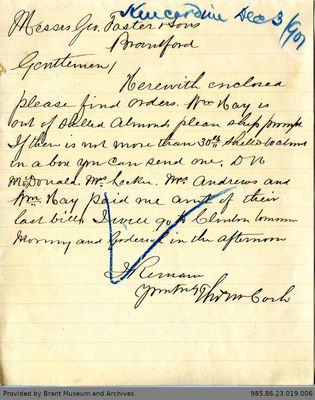 Kincardine Dec 3/1901
Messrs Geo. Foster & Sons
Brantford
Gentlemen,
Herewith enclosed
please find orders. Wm Hay is
out of Shelled Almonds please ship prompt
If there is not more than 30 lbs Shelled Walnuts
in a box you can send one. D N
McDonald. Mr. Secker. Mrs Andrews and
Wm Hay paid me amt of their
last bill. I will go to Clinton tomorrow
Morning and Goderich in the afternoon
I Remain
Yours truly
Provided by Brant Museum and Archives
985.86.23.019.006